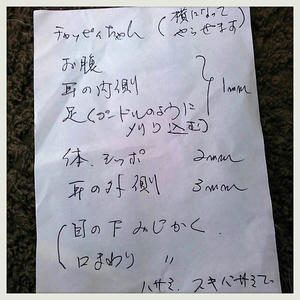 チャッピィちゃん (横になって
やらせます)
お腹
耳の内側
足(プードルのように
メリリ込む)
1mm
体、シッポ 2mm
耳の外側 3mm
目の下 みじかく
口まわり 〃
ハサミ、スキバサミで